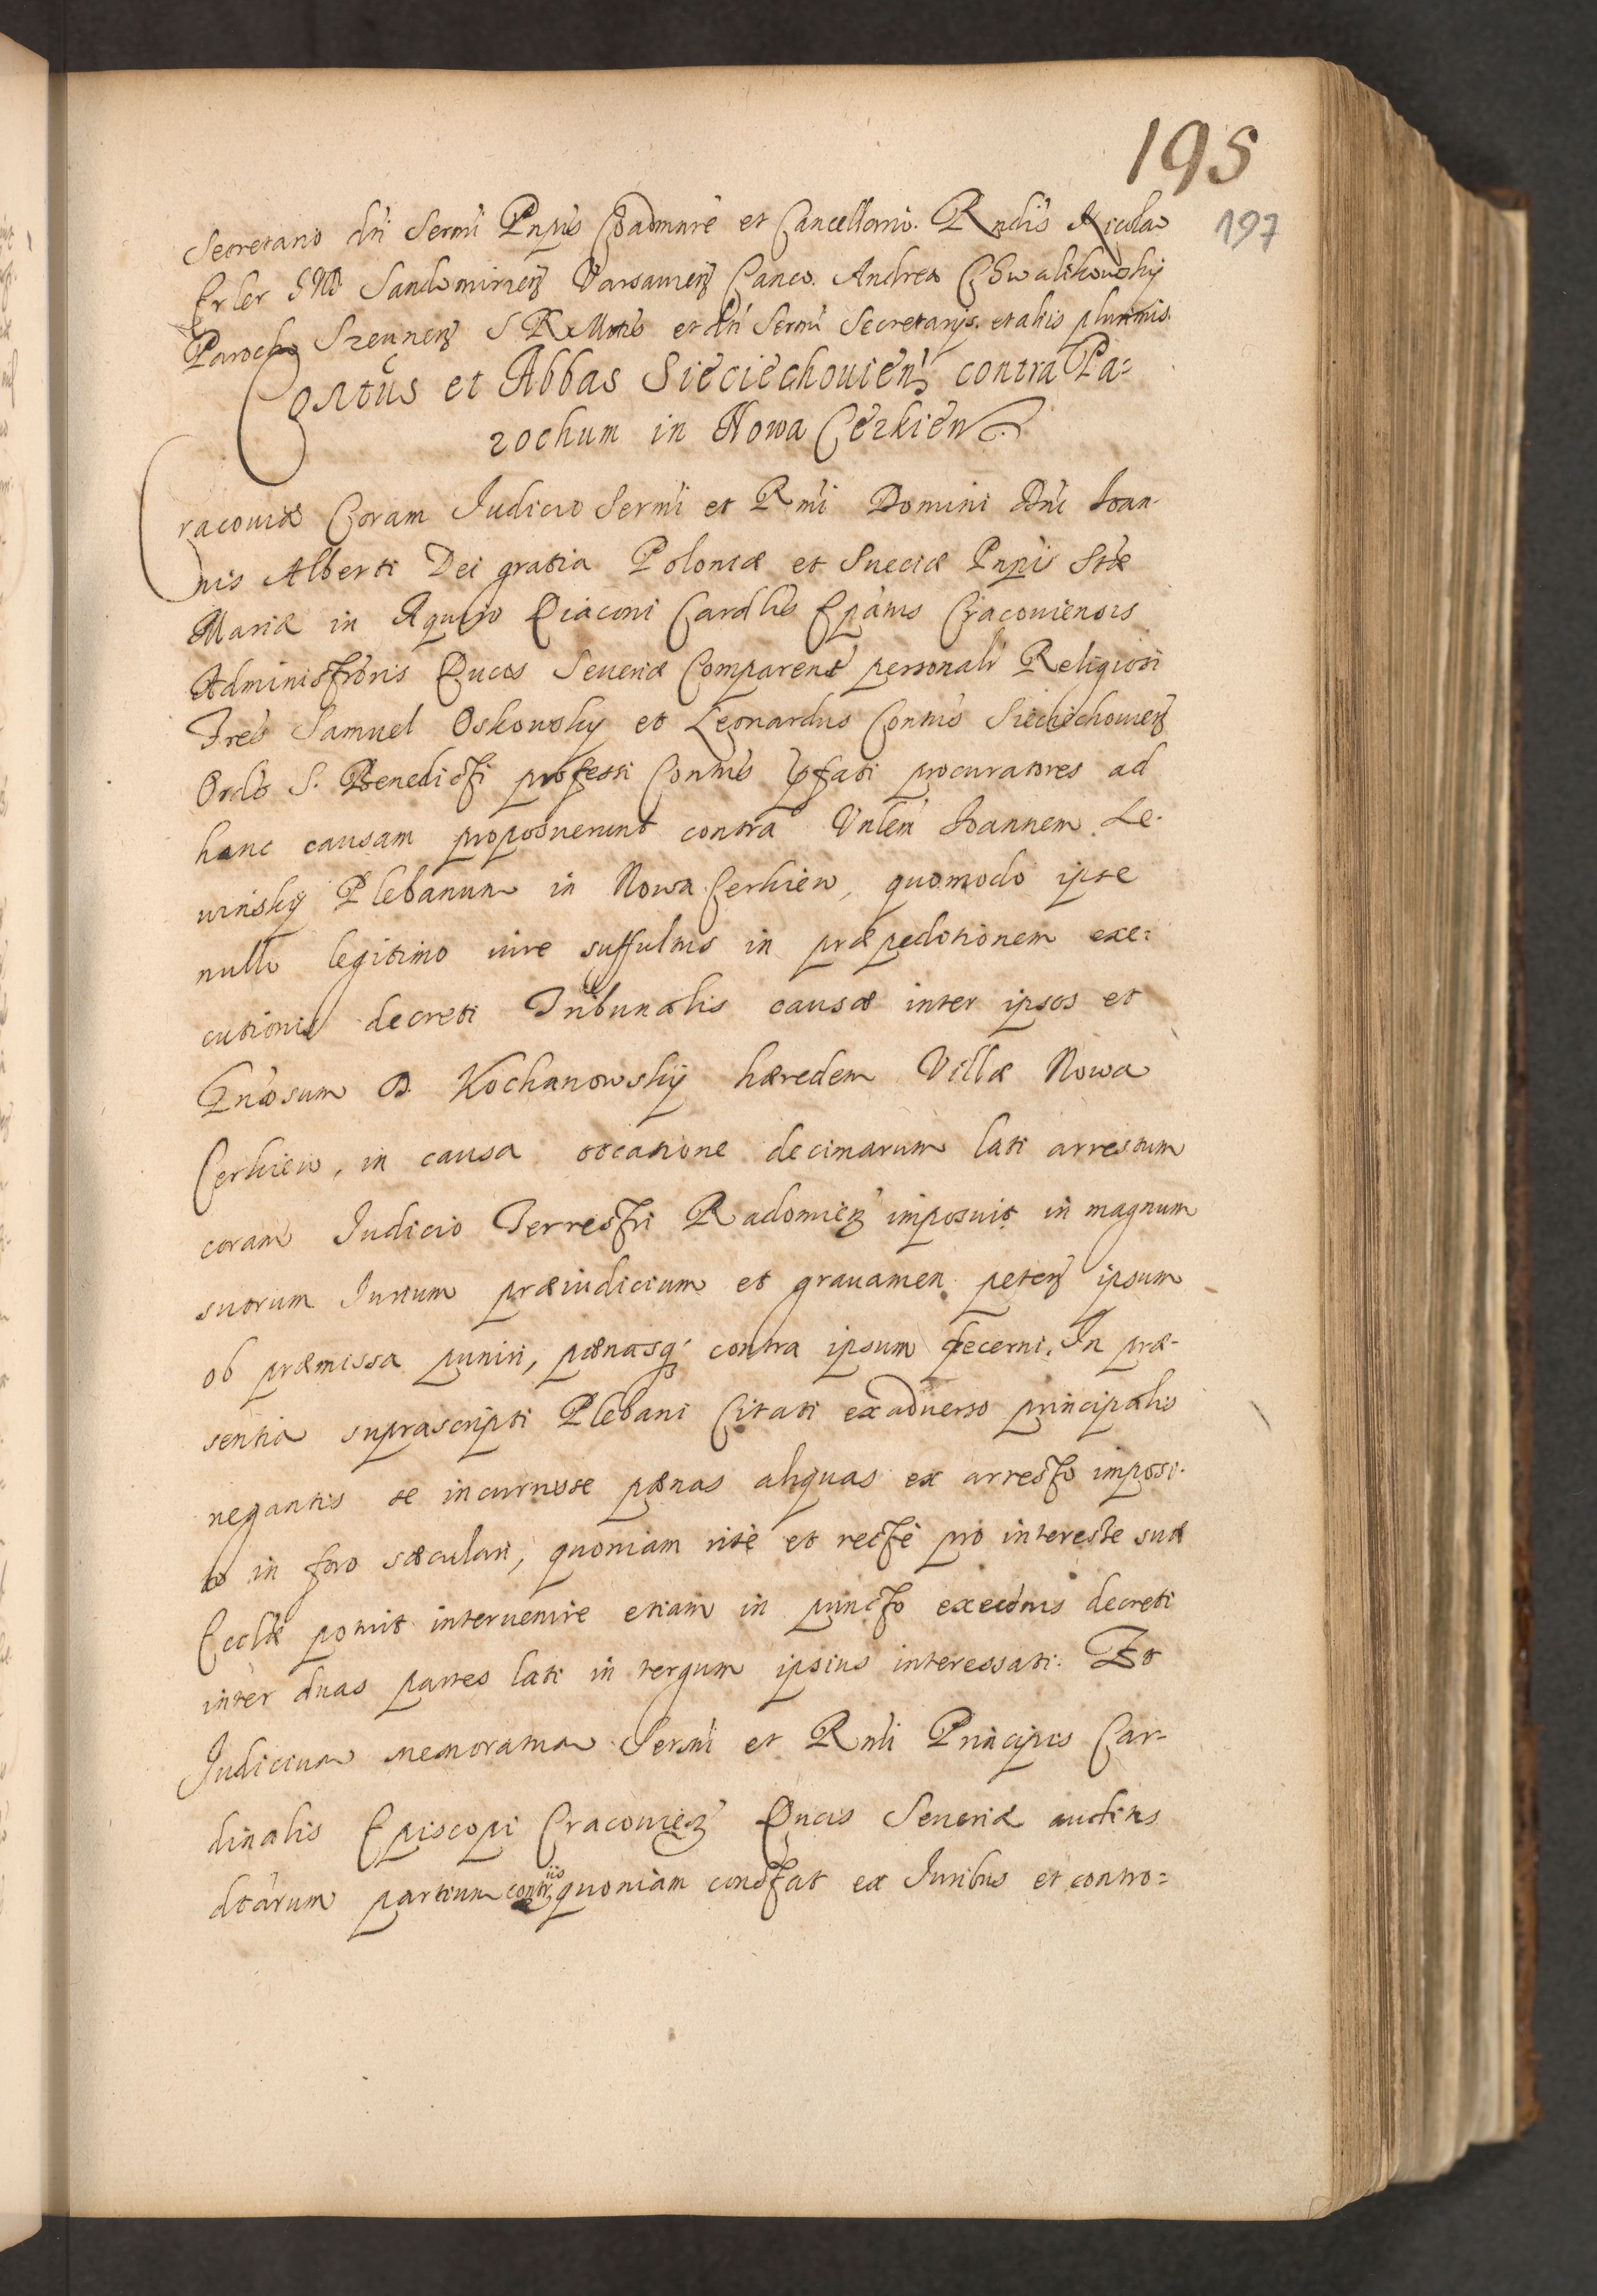 195
197
Secretario dti Sermi Pnpis Coadnnre et Cancellario. Rndis Nicolao
Erler Sandomirien Varsauien Canco. Andrea Chwalikowskÿ
Parocho S R Mtis et dti Sermi Secretarijs. et aliis plurimis.
Contus et Abbas Sieciechouien contra Pa=
rochum in Nowa Cerkiew.
Cracouiæ Coram Judicio Sermi et Rmi Domini Dni Joan-
nis Alberti Dei gratia Poloniæ et Sueciæ Pnpis Stæ
Mariæ in Aquiro Diaconi Cardlis Epatus Cracouiensis
Administroris Ducis Seueriæ Comparent personalr Religiosi
Fres Samuel Oskowskÿ et Leonardus Contus Siecichouien
Ordis S. Benedicti professi Contus pfati procuratores ad
hanc causam proposuerunt contra Vnlem Joannem Le-
uinskÿ Plebanum in Nowa Cerkiew, quomodo ipse
nullo legitimo iure suffultus in præpeditionem exe=
cutionis decreti Tribunalis causæ inter ipsos et
Gnosum D. Kochanowskÿ hæredem Villæ Nowa
Cerkiew, in causa occatione decimarum lati arrestum
coram Judicio Terrestri Radomien imposuit in magnum
suorum Jurium præiudicium et grauamen peten ipsum
ob præmissa puniri, pænasq contra ipsum decerni. In præ-
sentia suprascripti Plebani Citati ex aduerso principalis
negantis se incurrisse pænas aliquas ex arresto imposi-
to in foro sæculari, quoniam ritè et rectè pro interesse suæ
Ecclæ potuit interuenire etiam in puncto execonis decreti
inter duas partes lati in tergum ipsius interessati. Et
Judicium memoratum Sermi et Rmi Principis Car-
dinalis Episcopi Cracouien Ducis Seueriæ auditis
dtarum partium contr iis quoniam constat ex Juribus et contro=